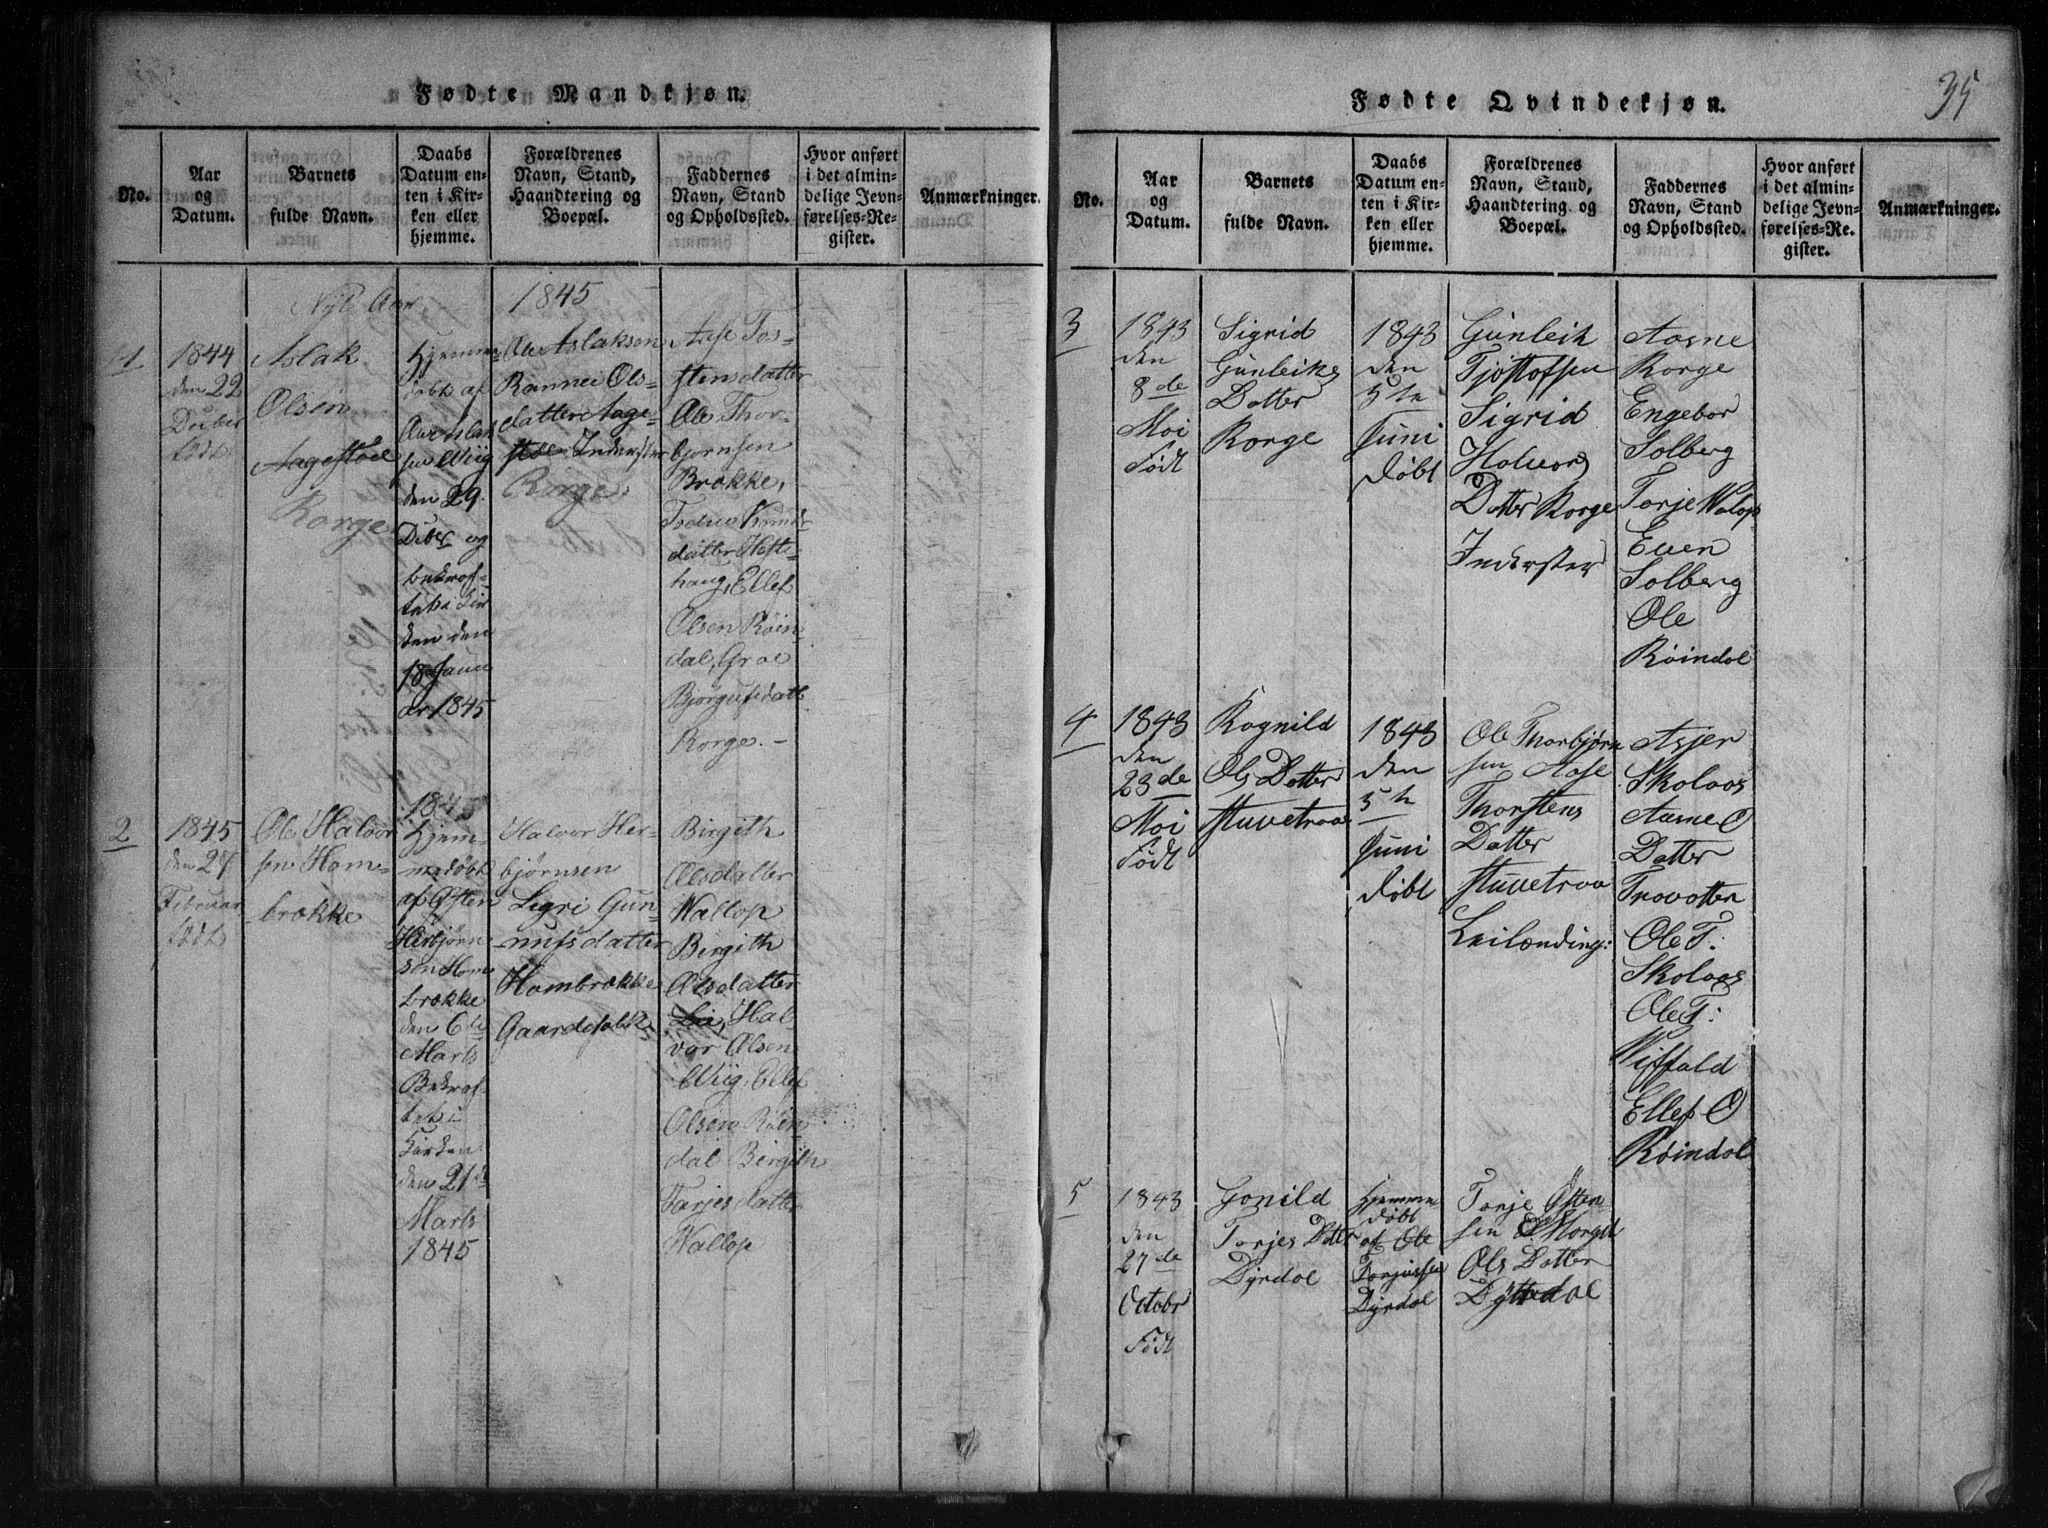 Fødte Mandkjøn.
No.
Aar
og
Datum.
Barnets
fulde Navn.
Daabs
Datum en-
ten i Kir-
ken eller
hjemme.
Forældrenes
Navn, Stand,
Haandtering og
Boepæl.
Faddernes
Navn, Stand
og Opholdssted.
Hvor anført
i det almin-
delige Jevn-
førelses-Re-
gister.
Anmærkninger.
Nyt Aar 1845
1
1844
den 22
Døbt
Aslak
Olsen
Aagestøel
Rorge
Hjemme
døbt af
Aslak
sen Wiig
den 29
Deber og
bekræf-
tet i Kir
ken den
18 Janu
ar 1845
Ole Aslaksen
Rannei Ols-
datter Aage-
støe Inderster
Rorge
Aase Tos-
stensdatter
Ole Thor-
bjørnsen
Brokke,
datter
haug, Ellef
Olsen Røin-
dal, Groe
Bjorgufsdatt
Rorge. -
2
1845
den 27
Februar
født
Ole Halvor
sen Hom-
brøkke
1845
Hjem-
medøbt
af Østen
Herbjørn
sen Hom
brøkke
den 6te
Marts
Bekræf-
tet i
Kirken
den 21de
Marts
1845
Halvor Her-
bjørnsen
Sigri Gun-
nufsdatter
Hombrøkke
Gaardefolk
Birgith
Olsdatter
Wallop
Birgith
Olsdatter
Lie, Hal-
vor Olsen
Wiig, Ellef
Olsen Røin
dal Birgith
Tarjesdatter
Wallop
Fødte Qvindekjøn.
35
No.
Aar
og
Datum.
Barnets
fulde Navn.
Daabs
Datum en-
ten i Kir-
ken eller
hjemme.
Forældrenes
Navn, Stand,
Haandtering og
Boepæl.
Faddernes
Navn, Stand
og Opholdssted.
Hvor anført
i det almin-
delige Jevn-
førelses-Re-
gister.
Anmærkninger.
3
1843
den
8de
Moi
Født
Sigrid
Gunleiks
Datter
Rorge
1843
den
5te
Juni
døbt
Gunleik
Tjøstofsen
Sigrid
Holvors
Datter Rorge
Inderster
Aasne
Rorge
Engebor
Solberg
Torje Walop
Even
Solberg
Ole
Røindol
4
1843
den
23de
Moi
Født
Rognild
Ols Datter
Stuvetraa
1843
den
5te
Juni
døbt
Ole Thorbjørn
sen Aase
Thorstens
Datter
Stuvetraa
Leilænding:
Asjer
Skolaas
Aasne O
Datter
Trovatten
Ole T:
Skolaas
Ole T:
Ellef O
Røindol
5
1843
den
27de
Octobr
Født
Gonild
Torjes Datter
Dyrdol
Hjemme
døbt
af Ole
Torjussen
Dyrdol
Torje Østen
sen Morgit
Ols Datter
Dyrdol